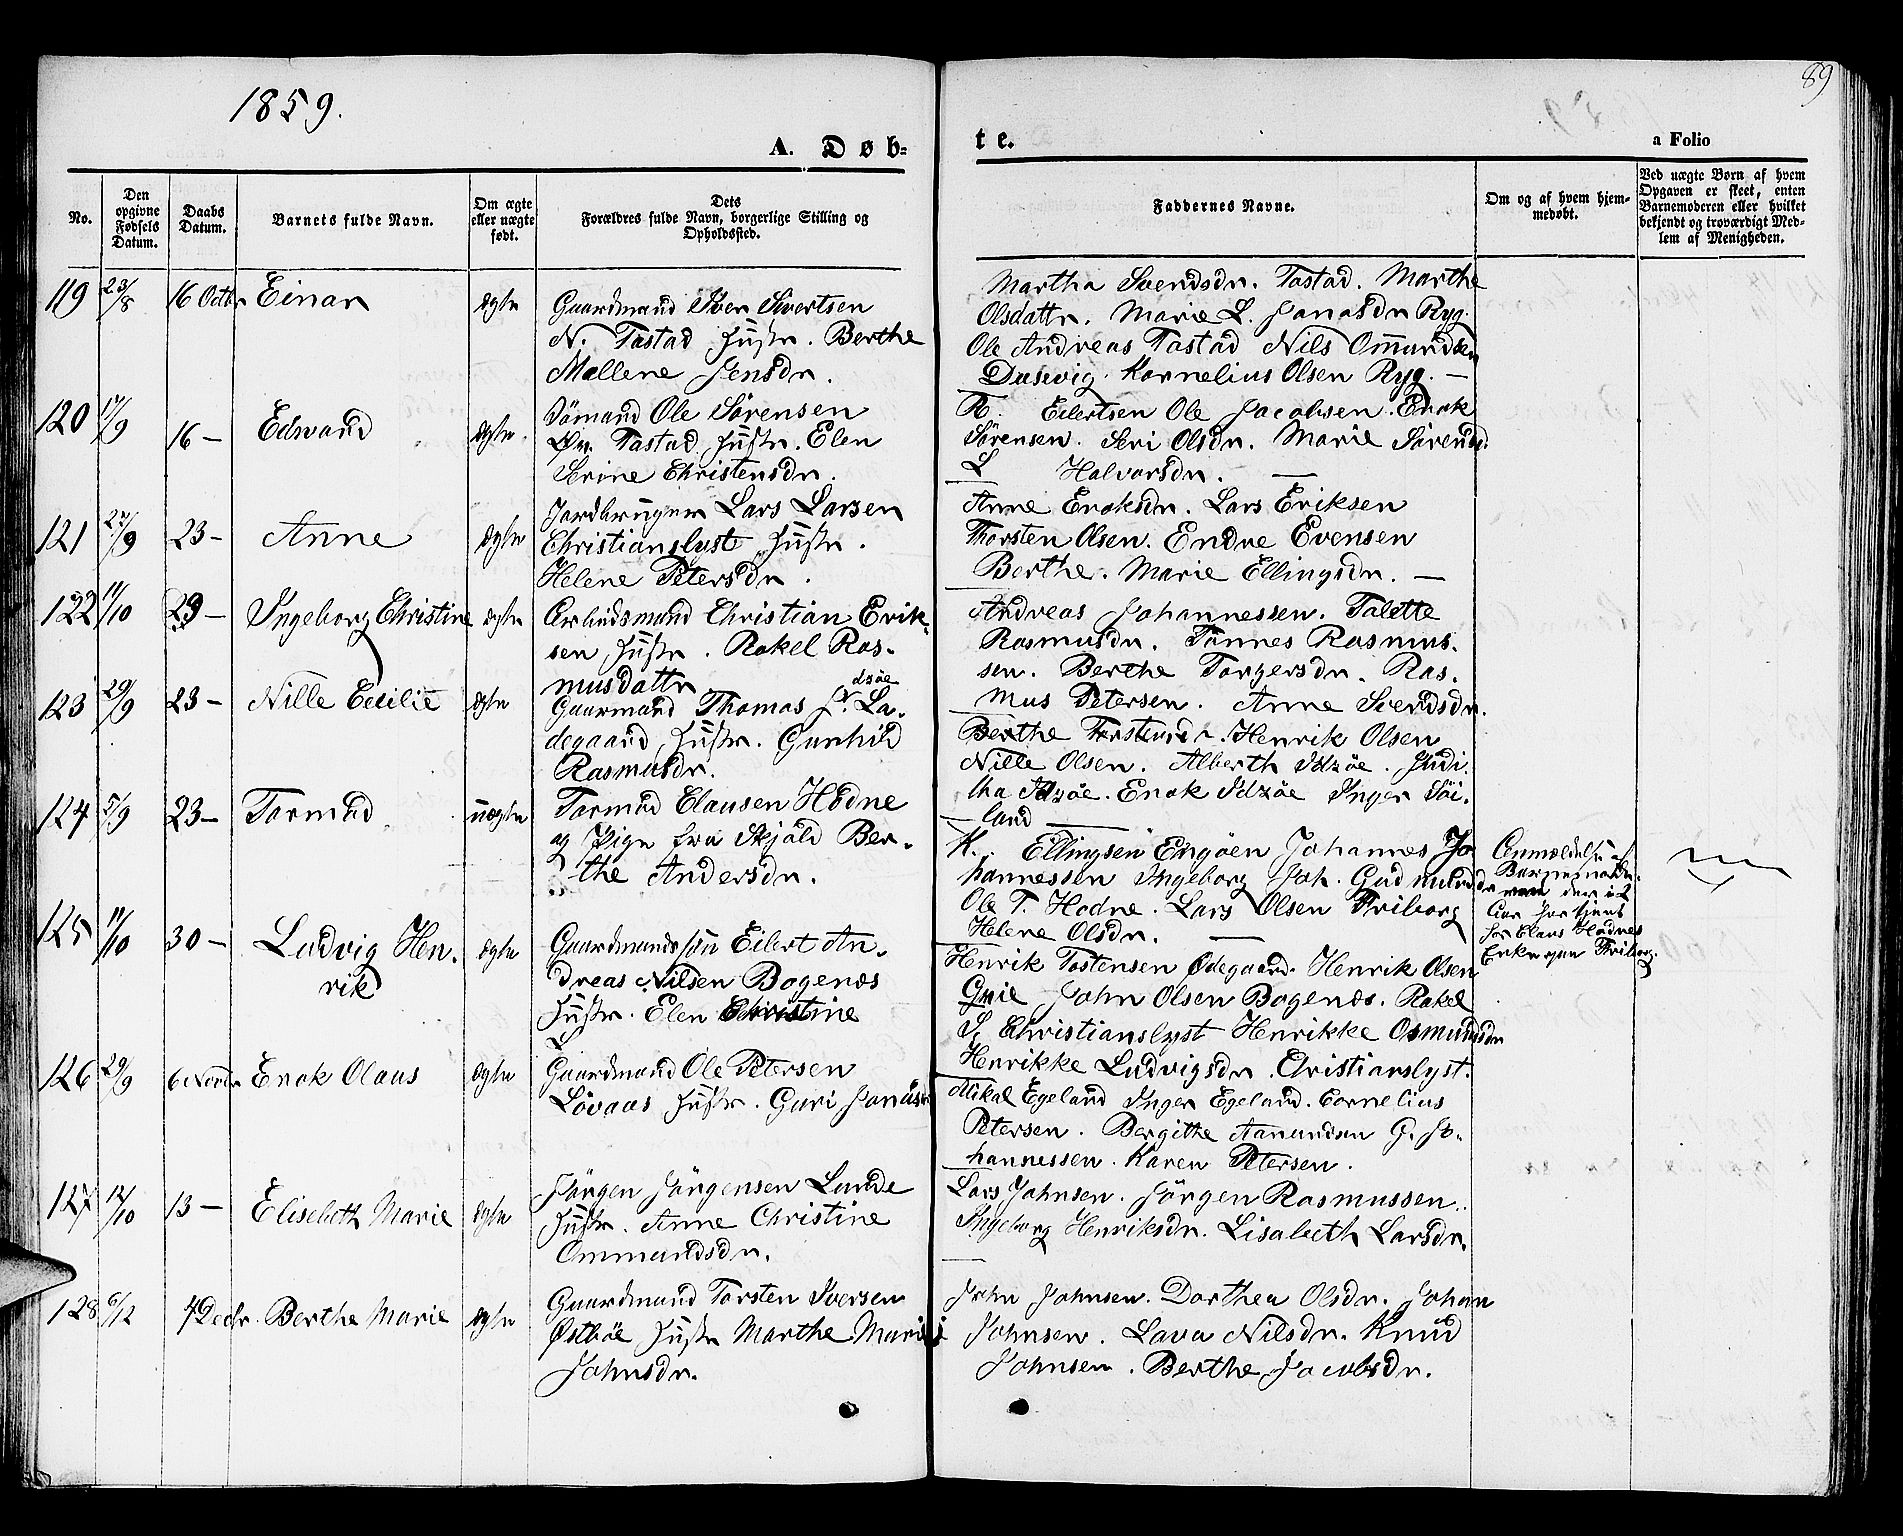 1859.
89
A. Døb-
te.
a Folio
No.
Den opgivne Fødsels Datum.
Daabs Datum.
Barnets fulde Navn.
Om ægte eller uægte født.
Dets Forældres fulde Navn, borgerlige Stilling og Opholdssted.
Faddernes Navne.
Om og af hvem hjem-
medøbt.
Ved uægte Børn af hvem
Opgaven er skeet, enten
Barnemoderen eller hvilket
bekjendt og troværdigt Med-
lem af Menigheden.
119 23/8 16 Octbr Einar ægte
Gaardmand Iver Sivertsen
N. Tastad Hustr. Berthe
Mallene Jensdr.
Martha Svendsdr. Tastad. Marthe
Olsdattr. Marie L. Jonasdr Ryg.
Ole Andreas Tastad Nils Omundsen
Dusevig. Kornelius Olsen Ryg. —
120 17/9 16 — Edvard ægte.
Ole Sørensen
Øv. Tastad. Hustr. Elen
Serine Christensdr.
R. Eilertsen Ole Jacobsen. Enok
Sørensen. Seri Olsdr. Marie Sørensd.
L Halvorsdr. —
121 27/9 23 — Anne ægte
Jordbruger Lars Larsen
Christianslyst Hustr.
Helene Petersdr.
Anne Enoksdr. Lars Eriksen
Thorsten Olsen. Endre Evensen
Berthe. Marie Ellingsdr. —
122 11/10 23 — Ingeborg Christine ægte
Arbeidsmand Christian Erik-
sen Hustr. Rakel Ras-
musdattr
Andreas Johannessen. Talette
Rasmusdr. Tønnes Rasmus-
sen. Berthe Torgersdr. Ras-
mus Petersen. Anne Svendsdr.
123 29/9 23 — Nille Cecilie ægte
Gaarmand Thomas La-
degaard, Hustr. Gunhild
Rasmusdr.
Berthe Henrik Olsen
Nille Olsen. Alberth Idzøe. Judi-
tha Idzøe. Enok Idzøe Inger Søi-
land —
124 5/9 23 — Tormod uægte
Tormod Clausen Hodne
og Pige fra Skjold Ber-
the Andersdr.
K. Ellingsen Engøen Johannes Jo-
hannessen Ingeborg Joh. Gudmundsdr
Ole T. Hodne. Lars Olsen Friborg
Helene Olsdr. —
Anmeldelse af
Barnemod.
der i et
Aar har tjent
for Claus Hodnes
Enke paa Friborg.
125 11/10 30 — Ludvig Hen-
rik ægte
Gaardmandssøn Eilert An-
dreas Nilsen Bogenes
Hustr. Elen Christine
L
Henrik Tostensen Ødegaard. Henrik Olsen
John Olsen Bogenes. Rakel
S. Christianslyst Henrikke Osmundsdr
Henrikke Ludvigsdr. Christianslyst.
126 29/9 6 Novbr Enok Olaus ægte
Gaardmand Ole Petersen
Løvaas Hustr. Guri Jonasdr
Mikal Egeland Inger Egeland. Cornelius
Petersen. Bergithe Aanundsen G. Jo-
hannessen. Karen Petersen.
127 12/10 13 — Elisebeth Marie ægte
Jørgen Jørgensen Lunde
Hustr. Anne Christine
Ommundsdr.
Lars Johnsen. Jørgen Rasmussen.
Ingeborg Henriksdr. Lisabeth Larsdr.
128 6/12 4 Decbr. Berthe Marie ægte
Gaardmand Torsten Iversen
Østbøe Hustr Marthe Marie
Johnsdr.
John Johnsen. Dorthea Olsdr. Johan
Johnsen. Lava Nilsdr. Knud
Johnsen. Berthe Jacobsdr.